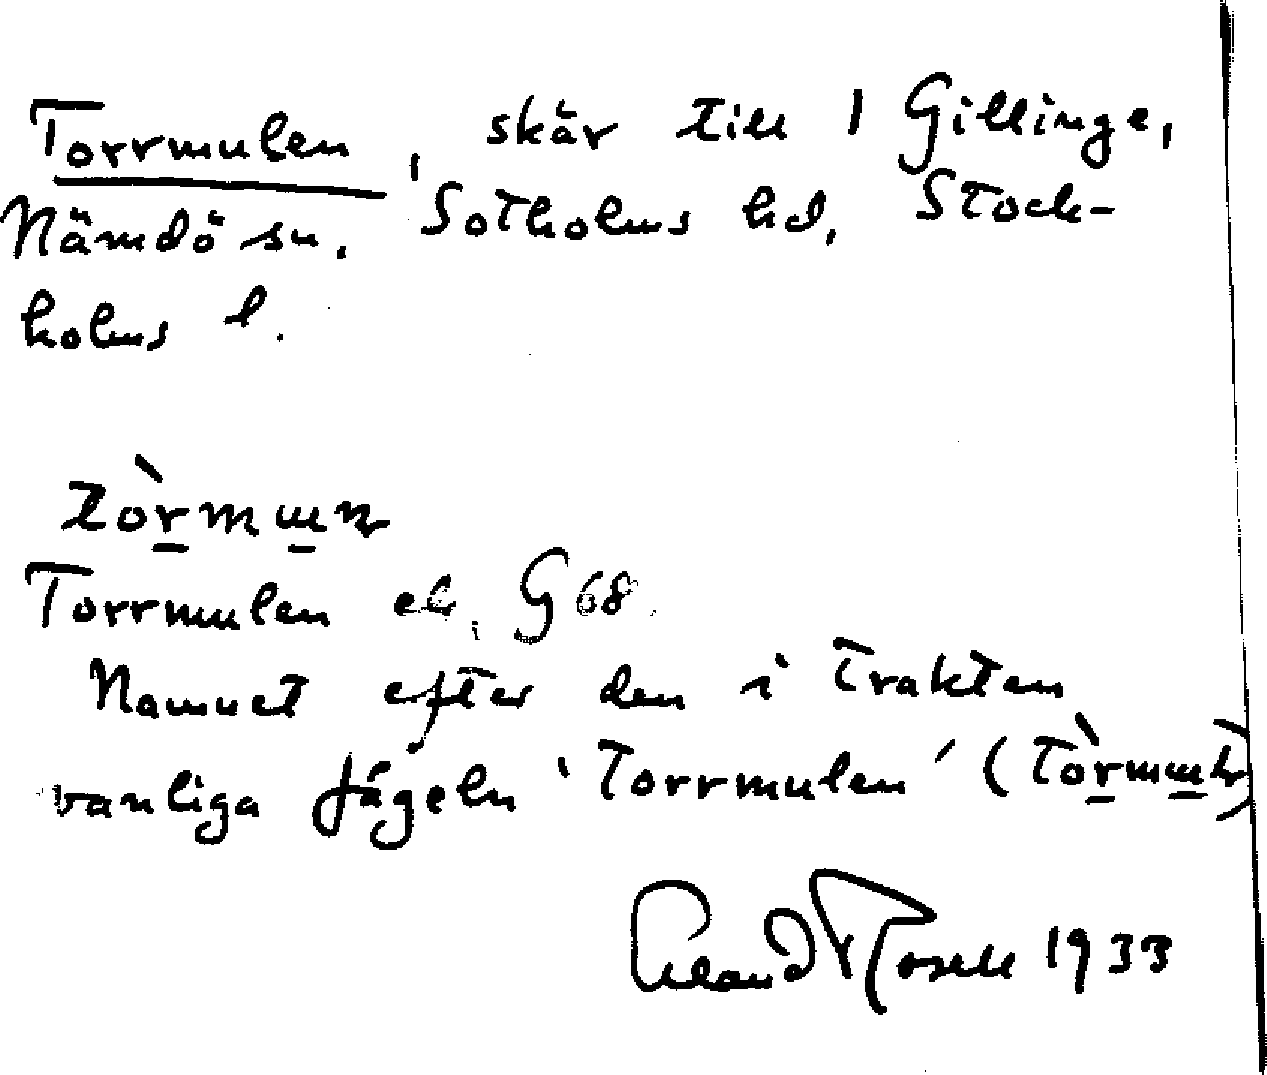 Torrmulen, skär till 1 Gillinge,
Nämdö sn. Sotholms hd, Stock-
holms l.
tòrmɯn
Torrmulen ek. G 68.
Namnet efter den i trakten
vanliga fågeln 'Torrmulen' (tòrmɯn)
Erland Rosell 1933